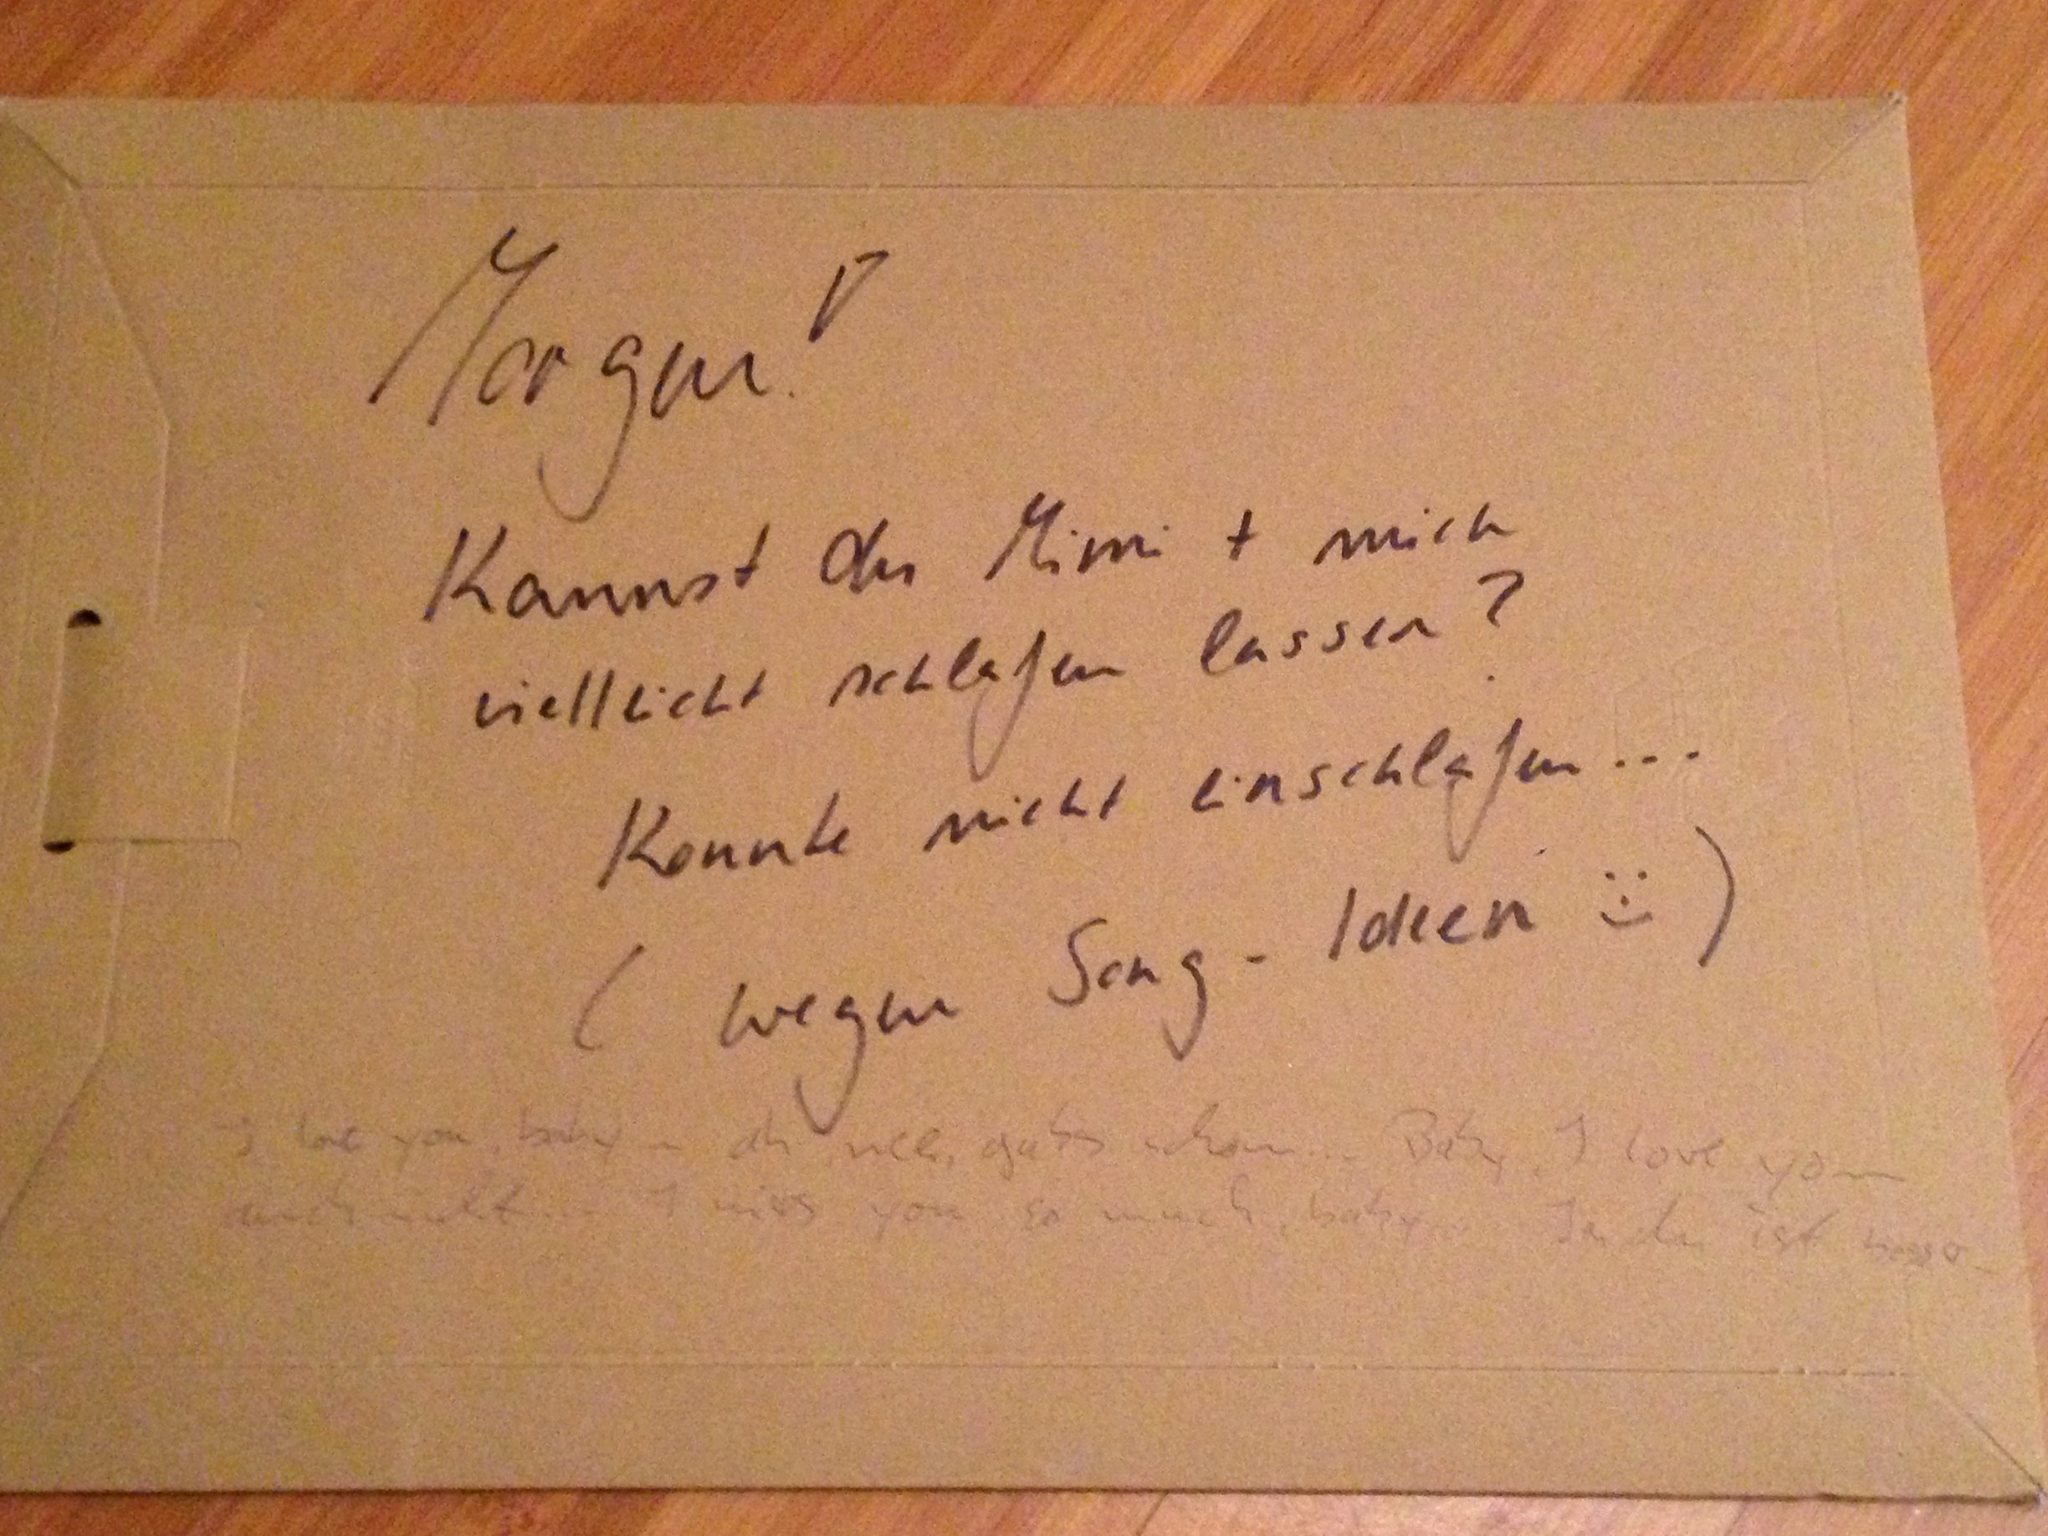 Morgen!
Kannst du Mimi + mich
vielleicht schlafen lassen?
Konnte nicht einschlafen...
( wegen Song-Ideen :) )
I love you, baby... oh nee, gabs schon... Baby, I love you
auch nicht... I miss you so much, baby... Ja, das ist besser